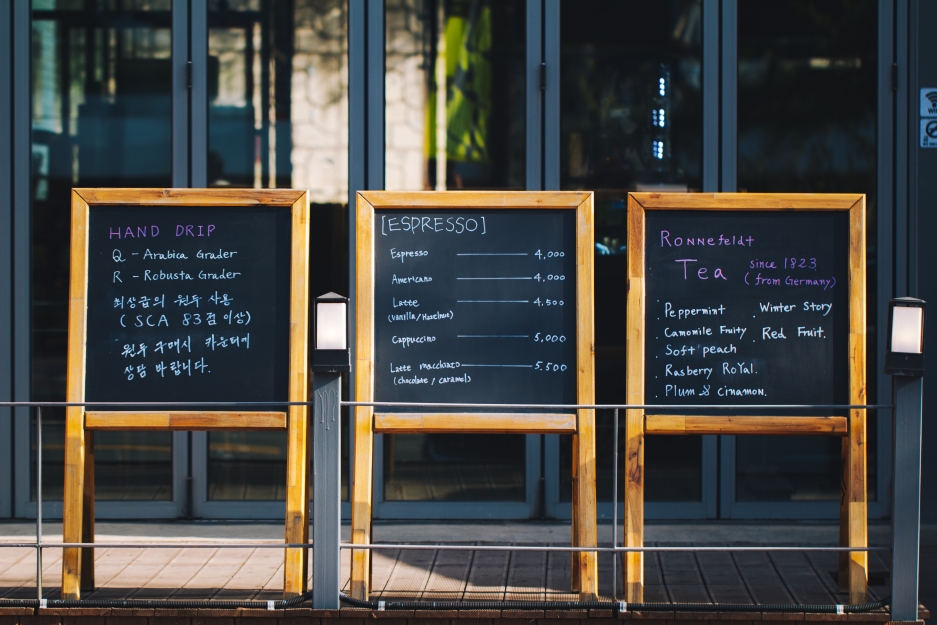 HAND DRIP
Q - Arabica Grader
R - Robusta Grader
최상급의 원두 사용
( SCA 83점 이상)
원두 구매시 카운터에
상담 바랍니다.
[ESPRESSO]
Espresso 4,000
Americano 4,000
Latte 4,500
(Vanilla/Hazelnut)
Cappuccino 5,000
Latte macchiato 5,500
(chocolate / caramel)
Ronnefeldt
Tea since 1823
( from Germany)
. Peppermint . Winter Story
. Camomile Fruity . Red Fruit.
. Soft peach
. Rasberry RoYal.
. Plum & Cinnamon.